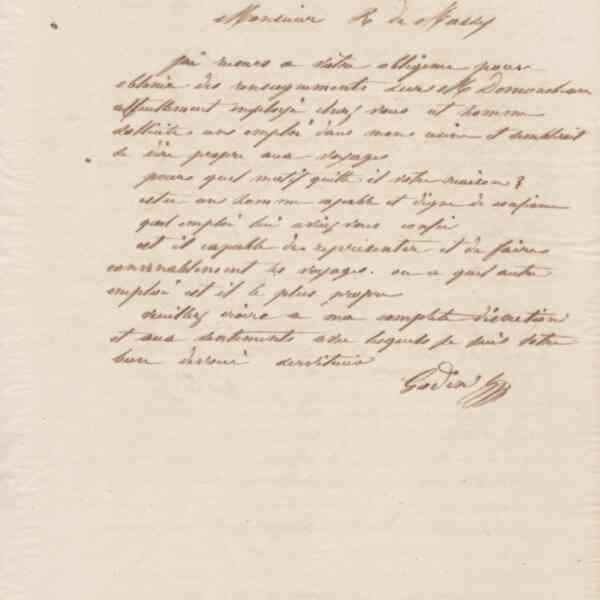 Monsieur R de Massy
j'ai recours a votre obligeance pour
obtenir des renseignements sur Mr
actuellement employé chez vous et homme
sollicite un emploi dans mon usine et semblerait
de être propre aux voyages
pour quel motif quitte il votre maison ?
est ce un homme capable et digne de confiance
quel emploi lui aviez vous confié
est il capable de représenter et de faire
convenablement les voyages. ou a quel autre
emploi est il le plus propre
veuillez croire a ma complete discretion
et aux sentiments avec lesquels je suis votre
bien dévoué serviteur
Godin